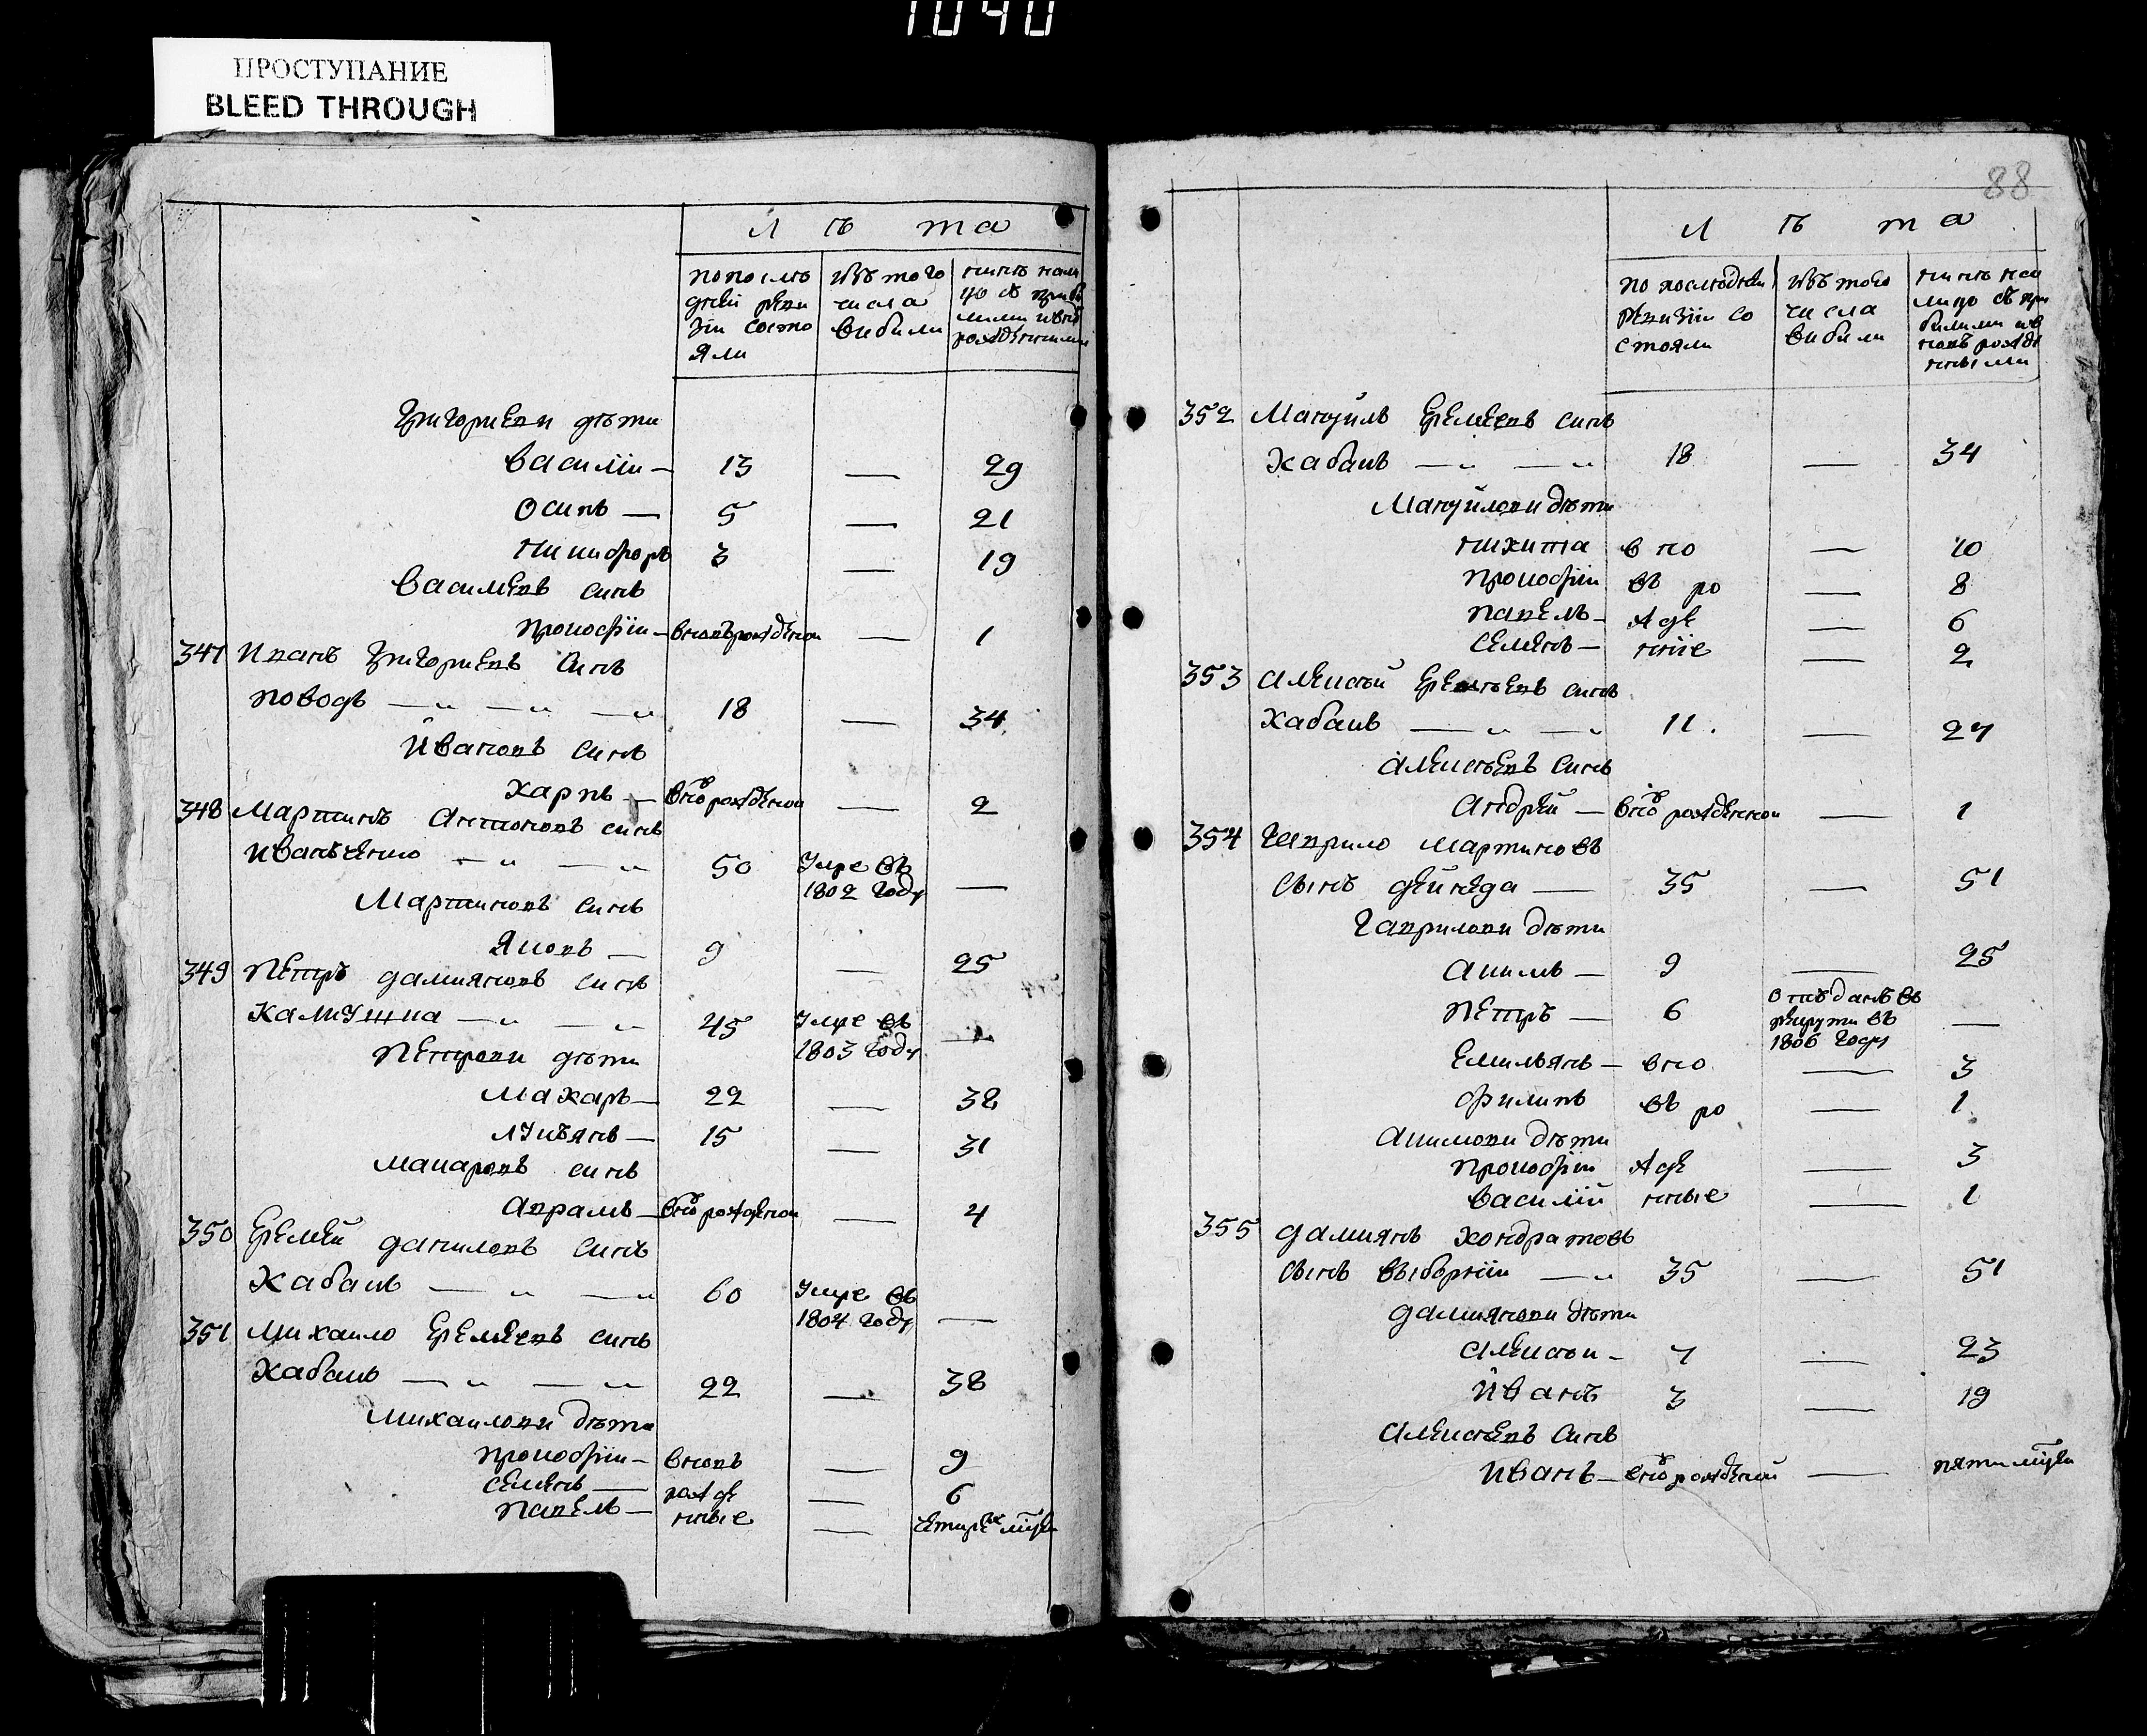 1040
ПРОСТУПАНИЕ
BLEED THROUGH
Л ѣ та
по послѣ изъ того
дней реви числа
зіи состо вибили
яли
Григориеви дѣти
Василіи — 13 — 29
Осипъ — 5 — 21
Никифоръ 3 — 19
Василиевъ синъ
Прокофіи — вновьрожденои — 1
347 Иванъ Григориевъ Синъ
Поводъ — „ — „ — „ 18 — 34
Ивановъ синъ
Карпъ — вновьрожденои — 2
348 Мартинъ Антоновъ синъ
Иванченко — „ — „ 50 Умре въ
1802 году —
Мартиновъ синъ
Яковъ — 9 — 25
349 Петръ дамияновъ синъ
Калюшка — „ — „ 45 Умре въ
1803 году —
Петрови дѣти
Макаръ — 22 — 38
Лукьянъ — 15 — 31
Макаровъ синъ
Аврамъ — вновьрожденои — 4
350 Еремей даниловъ синъ
Кабанъ — „ — „ 60 Умре въ
1804 году —
351 Михаило Еремеевъ синъ
Кабанъ — „ — „ 22 — 38
Михаилови дѣти
Прокофіи — вновь — 9
Семенъ — рожде — 6
Павелъ — нные —
88
Л ѣ та
по последнеи изъ того нинѣ на
ревизіи со числа лицо съ при
стояли вибили билими и в
новь рожде
нными
352 Мануйлъ Еремеевъ синъ
Кабанъ — „ — „ 18 — 34
Мануйлови дѣти
Никита в но — 10
Прокофіи въ ро — 8
Павелъ — жде — 6
Семенъ — нніе — 2
353 Алексѣй Еремѣевъ синъ
Кабанъ — „ — „ 11. — 27
Алексѣевъ синъ
Андрей — вновьрожденнои — 1
354 Гаврило Мартиновъ
сынъ дейнеда — 35 — 51
Гаврилови дѣти
Акимъ — 9 — 25
Петръ — 6 Отъданъ въ
рекрути въ —
1806 году
Емильянъ — вно — 3
Филипъ въ ро — 1
Акимови дѣти
Прокофіи жде — 3
Василій нные — 1
355 дамиянъ Кондратовъ
сынъ Выборніи — „ 35 — 51
дамиянови дѣти
Алексѣи — 7 — 23
Иванъ 3 — 19
Алексѣевъ синъ
Иванъ — вновьрожденій — пяти мцей